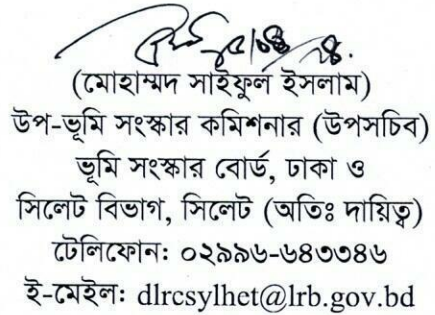 (মোহাম্মদ সাইফুল ইসলাম)
উপ-ভূমি সংস্কার কমিশনার (উপসচিব)
ভূমি সংস্কার বোর্ড, ঢাকা ও
সিলেট বিভাগ, সিলেট (অতিঃ দায়িত্ব)
টেলিফোন: ০২৯৯৬-৬৪৩৩৪৬
ই-মেইল: dlrcsylhet@lrb.gov.bd